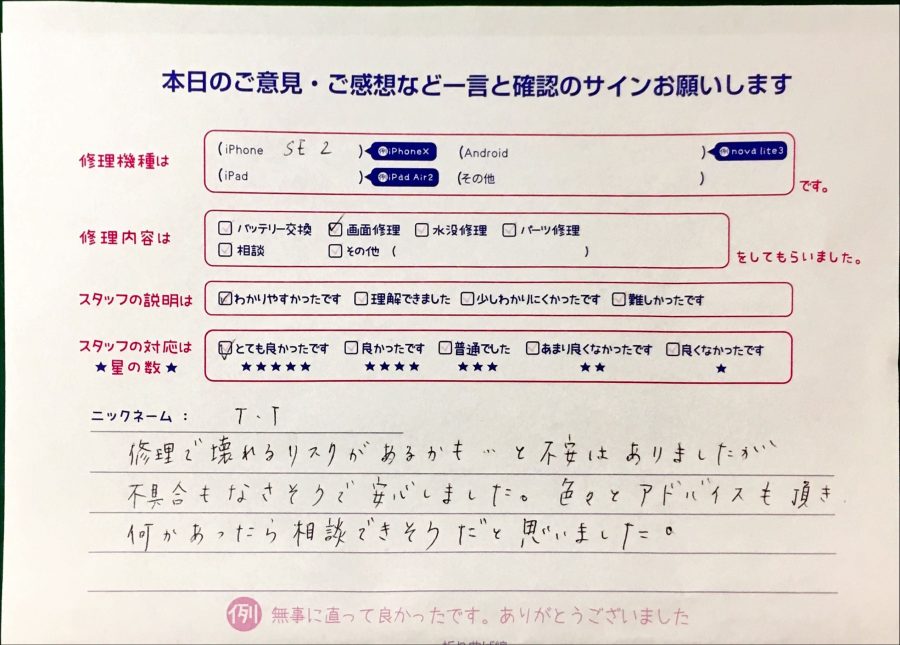 本日のご意見・ご感想など一言と確認のサインお願いします
修理機種は
(iPhone SE 2 ) 例iPhoneX (Android ) 例nova lite3
(iPad ) 例iPad Air2 (その他 )
です。
修理内容は
バッテリー交換 画面修理 水没修理 パーツ修理
相談 その他 ( )
をしてもらいました。
スタッフの説明は
わかりやすかったです 理解できました 少しわかりにくかったです 難しかったです
スタッフの対応は
★星の数★
とても良かったです 良かったです 普通でした あまり良くなかったです 良くなかったです
★★★★★ ★★★★ ★★★ ★★ ★
ニックネーム： T.T
修理で壊れるリスクがあるかも…と不安はありましたが
不具合もなさそうで安心しました。色々とアドバイスも頂き
何かあったら相談できそうだと思いました。
例 無事に直って良かったです。ありがとうございました